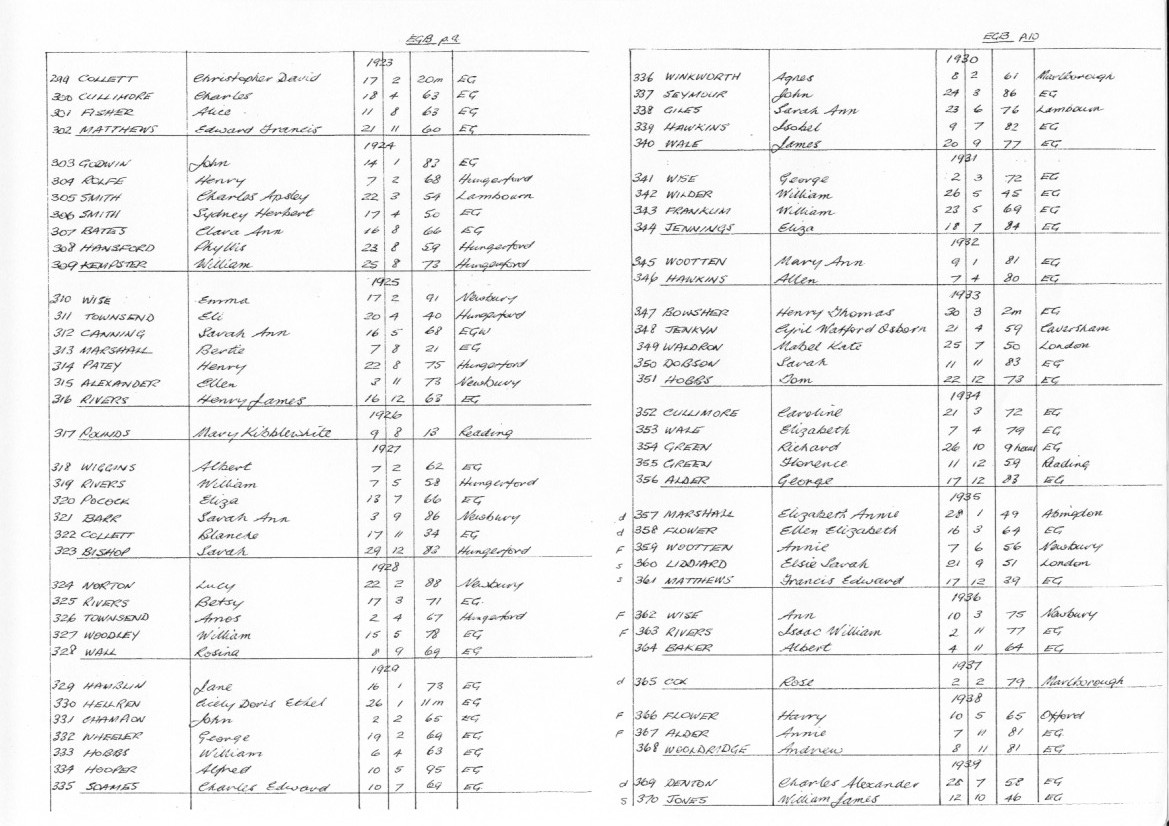 EGB p.9
1923
299 COLLETT Christopher David 17 2 20m EG
300 CULLIMORE Charles 18 4 63 EG
301 FISHER Alice 11 8 63 EG
302 MATTHEWS Edward Francis 21 11 60 EG
1924
303 GODWIN John 14 1 83 EG
304 ROLFE Henry 7 2 68 Hungerford
305 SMITH Charles Apsley 22 3 54 Lambourn
306 SMITH Sydney Herbert 17 4 50 EG
307 BATES Clara Ann 16 8 66 EG
308 HANSFORD Phyllis 23 8 59 Hungerford
309 KEMPSTER William 25 8 73 Hungerford
1925
310 WISE Emma 17 2 91 Newbury
311 TOWNSEND Eli 20 4 40 Hungerford
312 CANNING Sarah Ann 16 5 68 EGW
313 MARSHALL Bertie 7 8 21 EG
314 PATEY Henry 22 8 75 Hungerford
315 ALEXANDER Ellen 3 11 73 Newbury
316 RIVERS Henry James 16 12 63 EG
1926
317 POUNDS Mary Kibblewhite 9 8 13 Reading
1927
318 WIGGINS Albert 7 2 62 EG
319 RIVERS William 7 5 58 Hungerford
320 POCOCK Eliza 13 7 66 EG
321 BARR Sarah Ann 3 9 86 Newbury
322 COLLETT Blanche 17 11 34 EG
323 BISHOP Sarah 29 12 83 Hungerford
1928
324 NORTON Lucy 22 2 88 Newbury
325 RIVERS Betsy 17 3 71 EG.
326 TOWNSEND Amos 2 4 67 Hungerford
327 WOODLEY William 15 5 78 EG
328 WALL Rosina 8 9 69 EG
1929
329 HAMBLIN Jane 16 1 73 EG
330 HELLREN Cicely Doris Ethel 26 1 11m EG
331 CHAMPION John 2 2 65 EG
332 WHEELER George 19 2 69 EG
333 HOBBS William 6 4 63 EG
334 HOOPER Alfred 10 5 95 EG
335 SOAMES Charles Edward 10 7 69 EG
EGB p10
1930
336 WINKWORTH Agnes 8 2 61 Marlborough
337 SEYMOUR John 24 3 86 EG
338 GILES Sarah Ann 23 6 76 Lambourn
339 HAWKINS Isobel 9 7 82 EG
340 WALE James 20 9 77 EG
1931
341 WISE George 2 3 72 EG
342 WILDER William 26 5 45 EG
343 FRANKLIN William 23 5 69 EG
344 JENNINGS Eliza 18 7 84 EG
1932
345 WOOTTEN Mary Ann 9 1 81 EG
346 HAWKINS Allen 7 4 80 EG
1933
347 BOWSHER Henry Thomas 30 3 2m EG
348 JENKYN Cyril Watford Osborn 21 4 59 Caversham
349 WALDRON Mabel Kate 25 7 50 London
350 DOBSON Sarah 11 11 83 EG
351 HOBBS Tom 22 12 73 EG
1934
352 CULLIMORE Caroline 21 3 72 EG
353 WALE Elizabeth 7 4 79 EG
354 GREEN Richard 26 10 9 hours EG
355 GREEN Florence 11 12 59 Reading
356 ALDER George 17 12 83 EG
1935
d 357 MARSHALL Elizabeth Annie 28 1 49 Abingdon
d 358 FLOWER Ellen Elizabeth 16 3 64 EG
F 359 WOOTTEN Annie 7 6 56 Newbury
s 360 LIDDIARD Elsie Sarah 21 9 51 London
s 361 MATTHEWS Francis Edward 17 12 39 EG
1936
F 362 WISE Ann 10 3 75 Newbury
F 363 RIVERS Isaac William 2 11 77 EG
364 BAKER Albert 4 11 64 EG
1937
d 365 COX Rose 2 2 79 Marlborough
1938
F 366 FLOWER Harry 10 5 65 Oxford
F 367 ALDER Annie 7 11 81 EG
368 WOOLDRIDGE Andrew 8 11 81 EG
1939
d 369 DENTON Charles Alexander 28 7 58 EG
S 370 JONES William James 12 10 46 EG